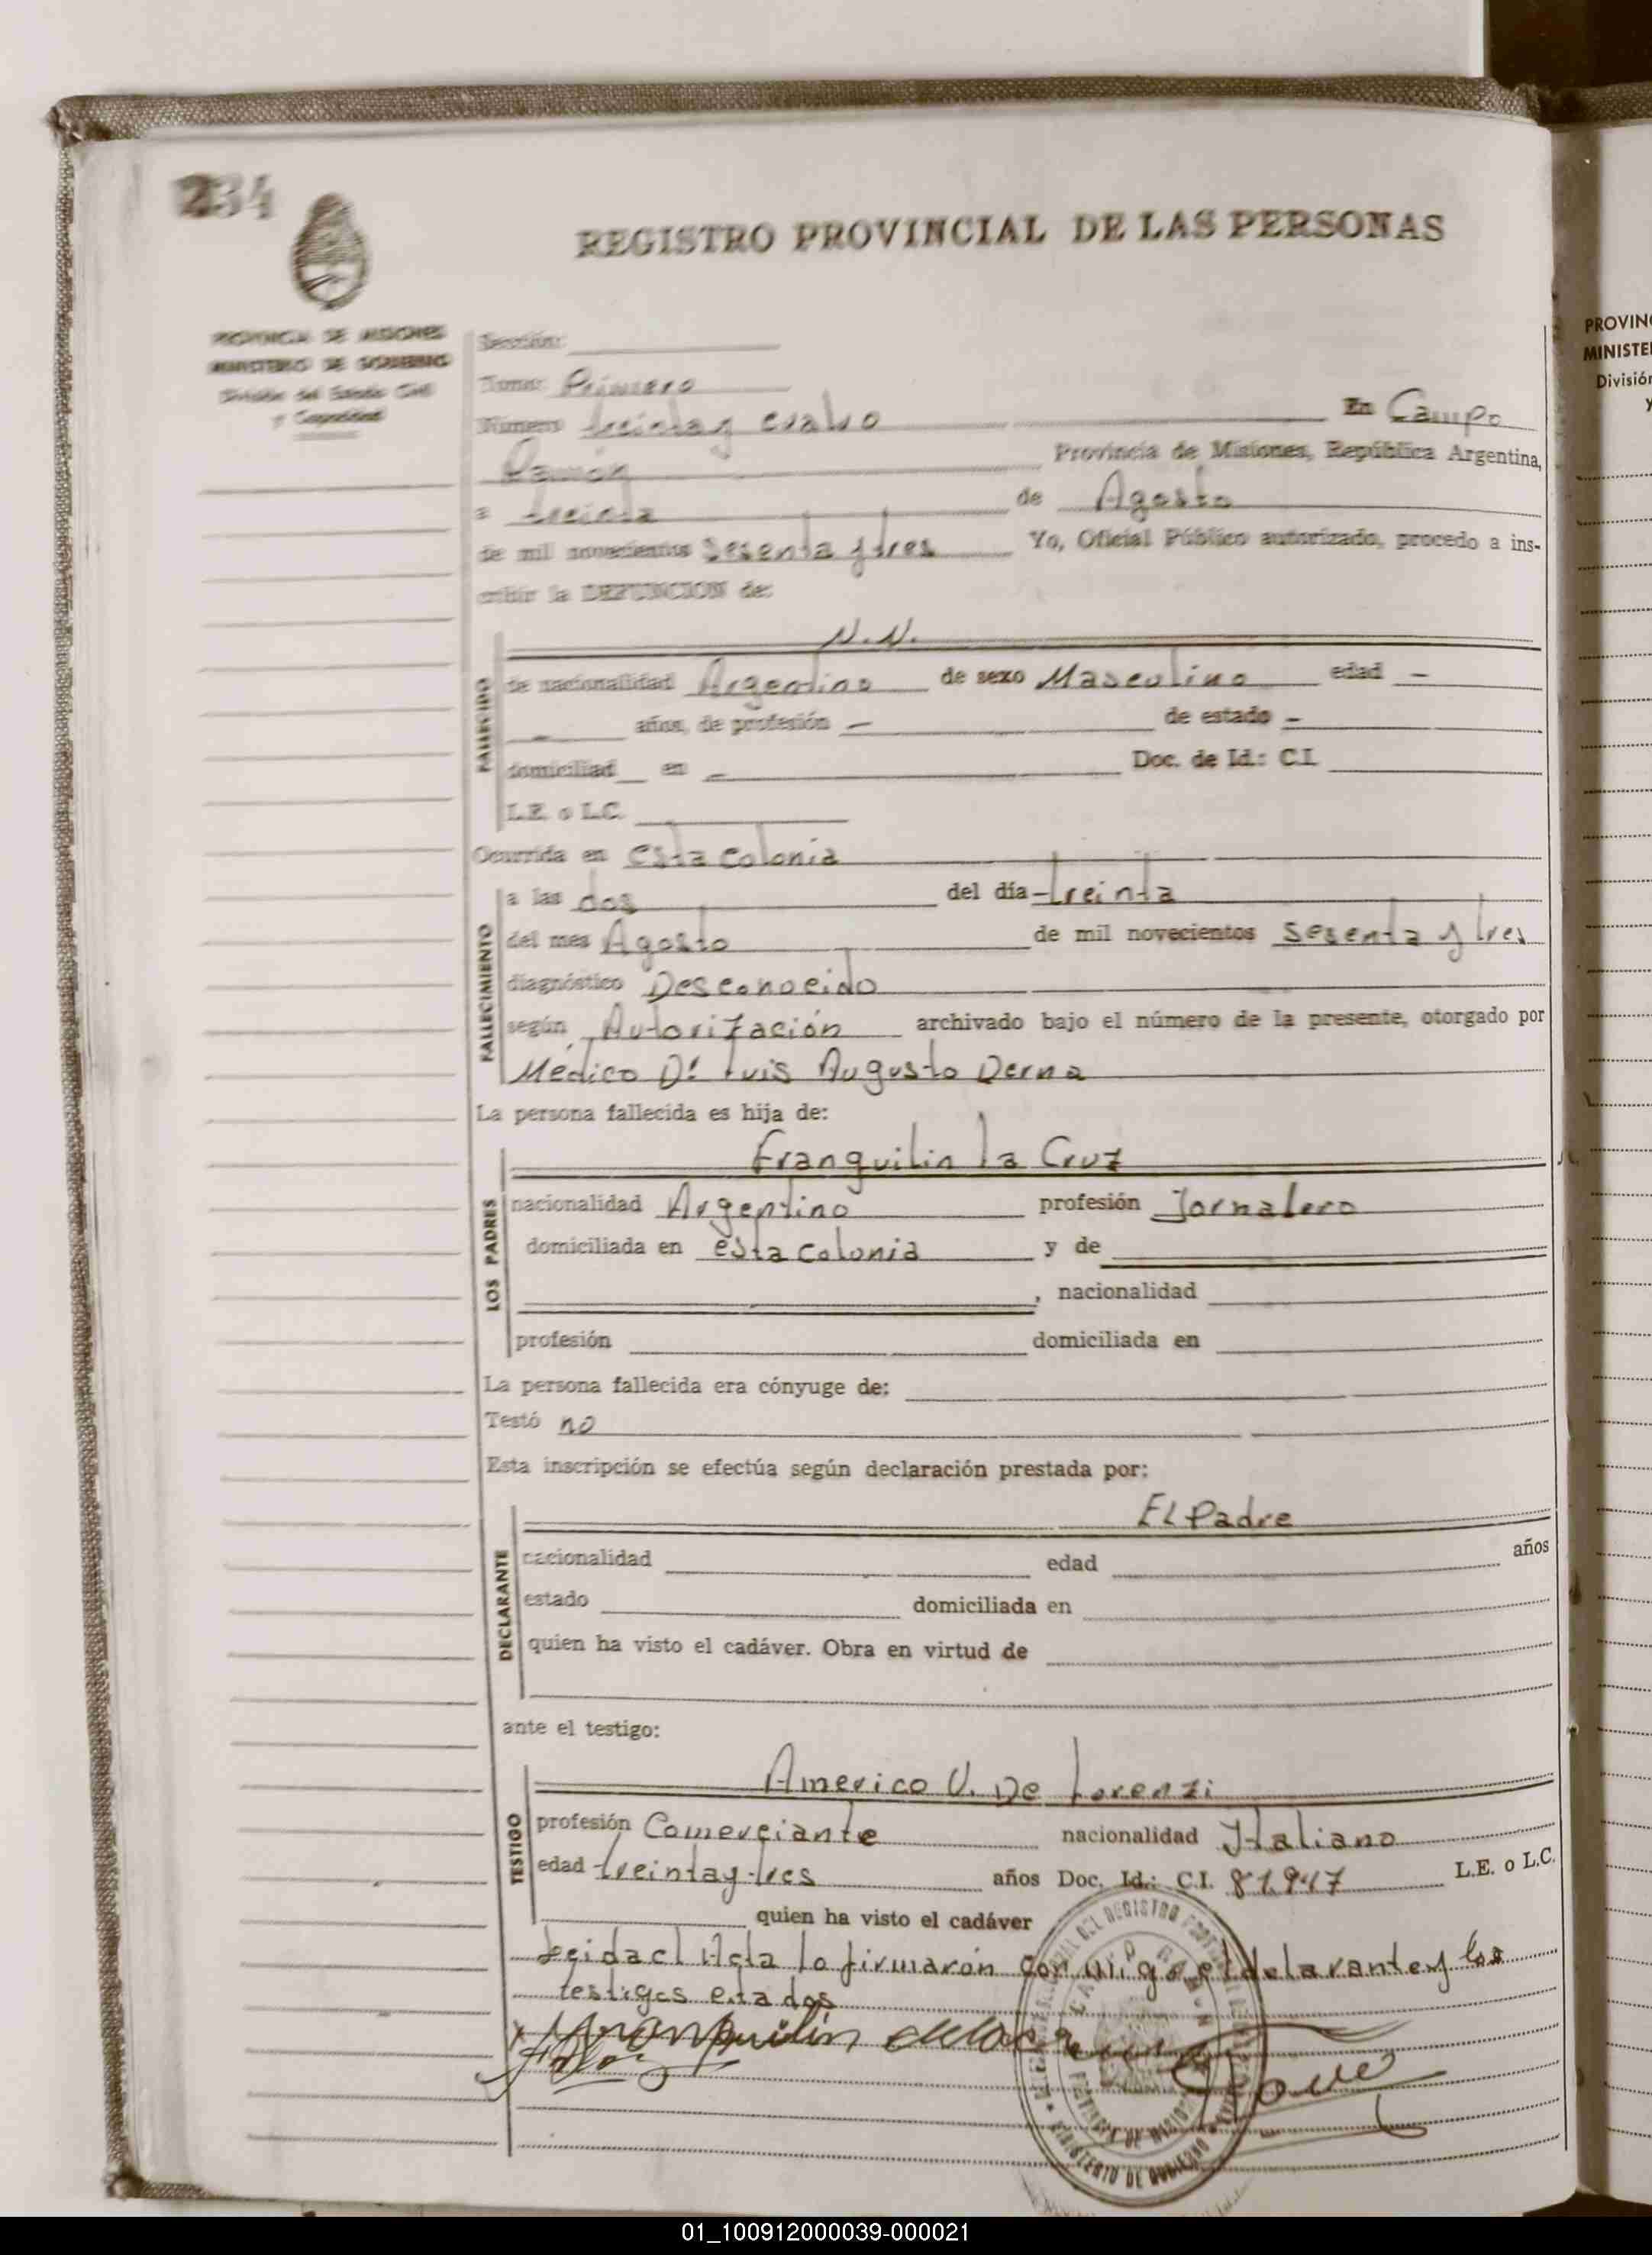 234
REGISTRO PROVINCIAL DE LAS PERSONAS
PROVINCIA DE MISIONES
MINISTERIO DE GOBIERNO
División del Estado Civil
y Capacidad
Sección:
Tomo: Primero
Número treinta y cuatro En Campo
Ramón Provincia de Misiones, República Argentina,
a treinta de Agosto
de mil novecientos Sesenta y tres Yo, Oficial Público autorizado, procedo a ins-
cribir la DEFUNCION de:
N.N.
FALLECIDO
de nacionalidad Argentino de sexo Masculino edad -
- años, de profesión - de estado -
domiciliad en - Doc. de Id.: C.I.
L.E. o L.C.
Ocurrida en esta colonia
FALLECIMIENTO
a las dos del día treinta
del mes Agosto de mil novecientos Sesenta y tres
diagnóstico Desconocido
según Autorización archivado bajo el número de la presente, otorgado por
Médico Dr. Luis Augusto Derna
La persona fallecida es hija de:
Franquilin la Cruz
LOS PADRES
nacionalidad Argentino profesión Jornalero
domiciliada en esta colonia y de
, nacionalidad
profesión domiciliada en
La persona fallecida era cónyuge de:
Testó no
Esta inscripción se efectúa según declaración prestada por:
El Padre
DECLARANTE
nacionalidad edad años
estado domiciliada en
quien ha visto el cadáver. Obra en virtud de
ante el testigo:
Americo V. De Lorenzi
TESTIGO
profesión Comerciante nacionalidad Italiano
edad treinta y tres años Doc. Id.: C.I. 81.947 L.E. o L.C.
quien ha visto el cadáver
Leida el Acta lo firmarón con migo el delarante y los
testigos citados
PROVIN
MINISTE
División
y
01_100912000039-000021